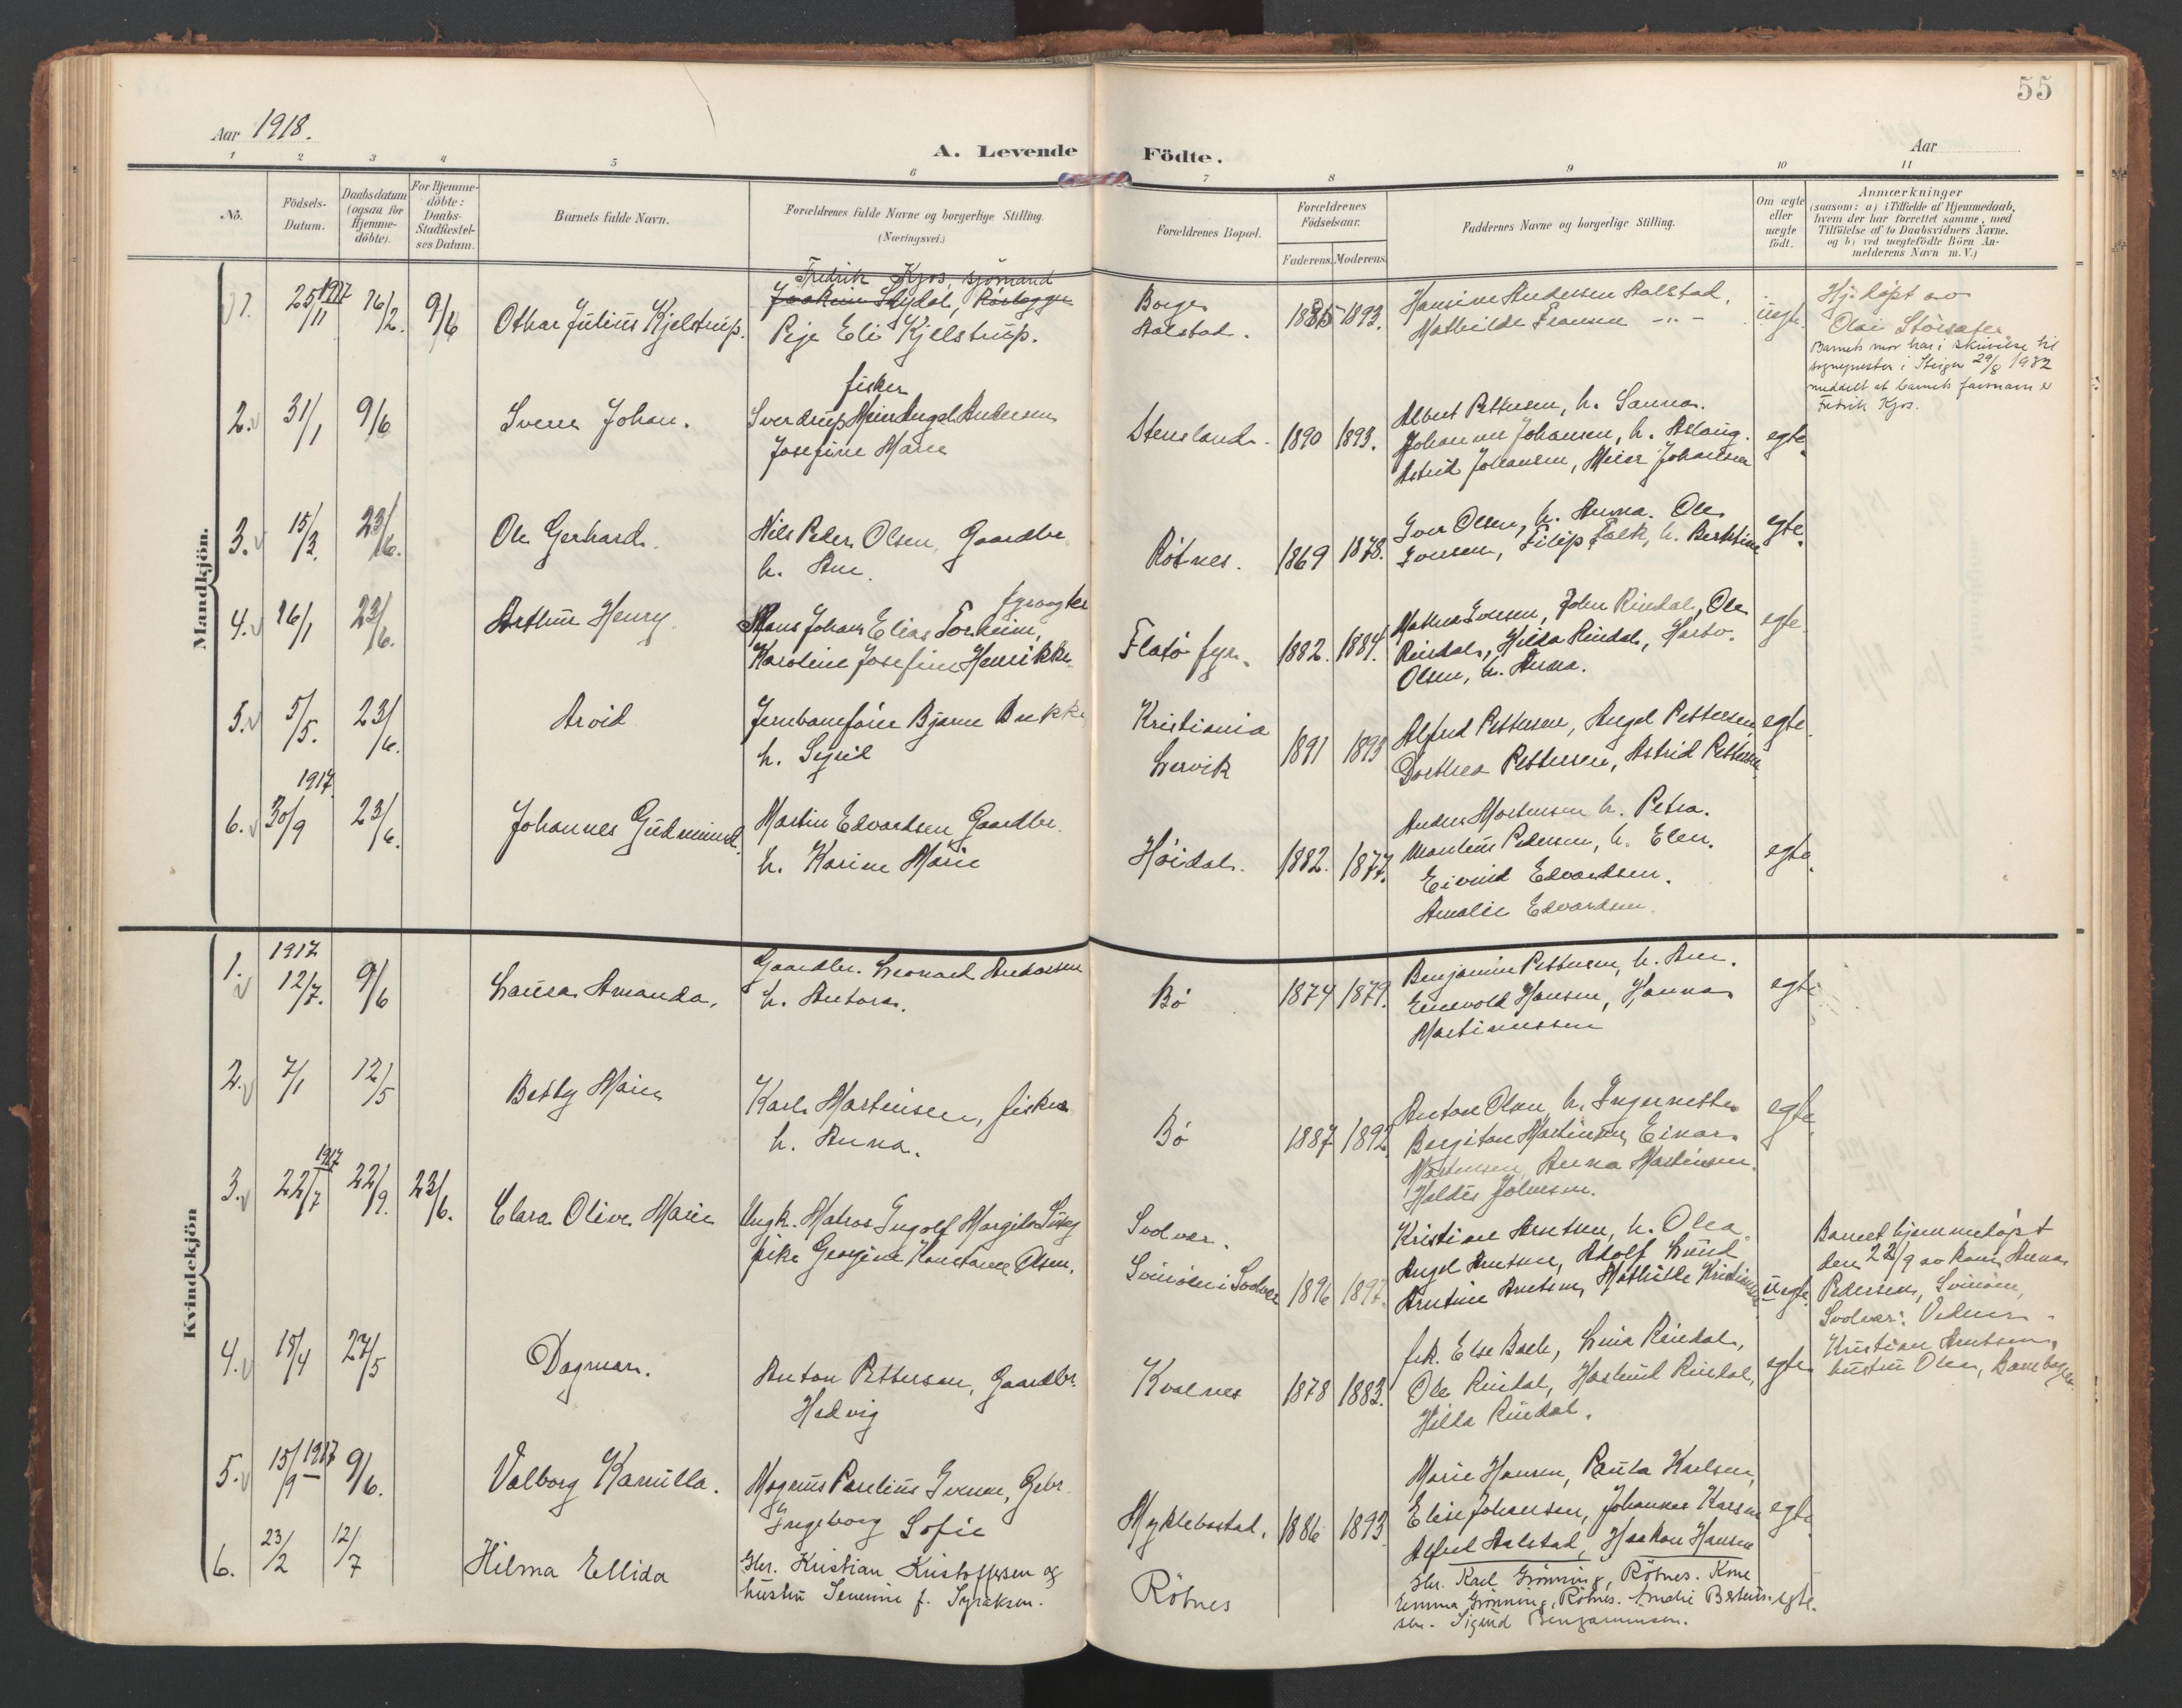 55
Aar 1918.
A. Levende Födte.
Aar
1 2 3 4 5 6 7 8 9 10 11
No.
Födsels-Datum.
Daabsdatum (ogsaa for Hjemme-döbte).
For Hjemme-döbte: Daabs-Stadfæstel-ses Datum.
Barnets fulde Navn.
Forældrenes fulde Navne og borgerlige Stilling. (Næringsvei.)
Forældrenes Bopæl.
Forældrenes Födselsaar.
Faderens. Moderens.
Faddernes Navne og borgerlige Stilling.
Om ægte eller uægte födt.
Anmærkninger
(saasom: a) i Tilfælde af Hjemmedaab,
hvem der har forrettet samme, med
Tilföielse af to Daabsvidners Navne.
og b) ved uægtefödte Börn An-
melderens Navn m. V.)
Mandkjön.
1. 25/11 1917 16/2. 9/6 Othar Julius Kjelstrup.
Fredrik Kjos, sjömand
Eli Kjellstrup.
Borge
Aalstad.
1885 1893.
Hansine Andersen Aalstad.
Mathilde -"-
uegte
Hj. döpt av
Barnets mor har i skrivelse til
sogneprester i Steigen 29/8 1932
meddelt at barnets farsnavn er
Fredrik Kjos.
2. 31/1 9/6 Sverre Johan.
fisker
Sverdrup Andersen
Josefine Marie
Stensland.
1890 1893.
Albert Pettersen, h. Sanna.
Johannes Johansen, h. Aslaug.
Astrid Johansen, Meier Johansen
egte.
3. 15/3. 23/6. Ole Gerhard.
Nils Peder Olsen, Gaardbr.
h. Ane.
Røtnes.
1869 1878.
Iver Olsen, h. Anna. Ole
Iversen, Filip Falk, h. Berntine
egte.
4. 16/1 23/6. Arthur Henry.
fyrvogter
Hans Johan Elias Torheim,
Karoline Josefine Henrikke
Flatö fyr.
1882. 1884.
Mathea Iversen, John Rindal, Ole
Rindal, Hilda Rindal,
Olsen, h. Anna.
egte.
5. 5/5. 23/6. Arvid
Bjarne Brekke
h. Sigrid
Kristiania
Lervik
1891 1893
Alfred Pettersen, Angel Pettersen
Dorthea Pettersen, Astrid Pettersen
egte.
6. 1917. 30/9 23/6. Johannes Gudmund.
Martin Edvardsen Gaardbr.
h. Karine Marie
Höidal.
1882. 1877.
Anders Mortensen h. Petra.
Pedersen, h. Elen.
Eivind Edvardsen.
Amalie Edvardsen.
egte.
Kvindekjön
1. 1917 12/7. 9/6 Laura Amanda.
Gaardbr. Leonard Andersen
h. Antora.
Bö
1874 1879.
Benjamin Pettersen, h. Ane.
Hansen, Hanna
Martinussen
egte
2. 7/1 12/5 Betty Marie
Karl Martinsen, fisker
h. Anna.
Bö
1887 1892.
Anton Olsen, h. Ingernette
Bergiton Martinsen, Einar
Martinsen, Anna Martinsen.
Haldis Johnsen.
egte.
3. 1917 22/7 22/9. 23/6. Clara Olive Marie
Ungk. Matros Ingolf Margido
pike Georgine Konstance Olsen.
Svolvær.
Svinöen i Svolvær
1896 1897.
Kristian Arntsen, h. Olea.
Angel Arntsen, Adolf Lund
Arntine Arntsen, Mathilde Kristiansen
uegte.
Barnet hjemmedöpt
den 22/9 av kone Anna
Pedersen, Svinöen,
Svolvær. Vidner
Kristian Arntsen,
hustru Olea,
4. 15/4 27/5 Dagmar.
Anton Pettersen, Gaardbr.
Hedvig
Kvalnes
1878 1883.
frk. Else Bach, Lina Rindal,
Ole Rindal, Rindal,
Hilda Rindal.
egte
5. 15/9 1917 9/6. Valborg Kamilla.
Magnus Paulius Iversen, Gbr.
Ingeborg Sofie
Myklebostad.
1886 1893
Marie Hansen, Paula Karlsen,
Elise Johansen, Johannes Karlsen
Alfred Aalstad, Haakon Hansen
egte.
6. 23/2 12/7 Hilma Ellida
Gbr. Kristian Kristoffersen og
hustru Senine f. Syraksen.
Röbnes
Gbr. Karl Grönning, Röbnes. Kone
Emma Grönning, Röbnes. Amalie Berteus-
sen. Sigurd Benjaminsen.
egte.